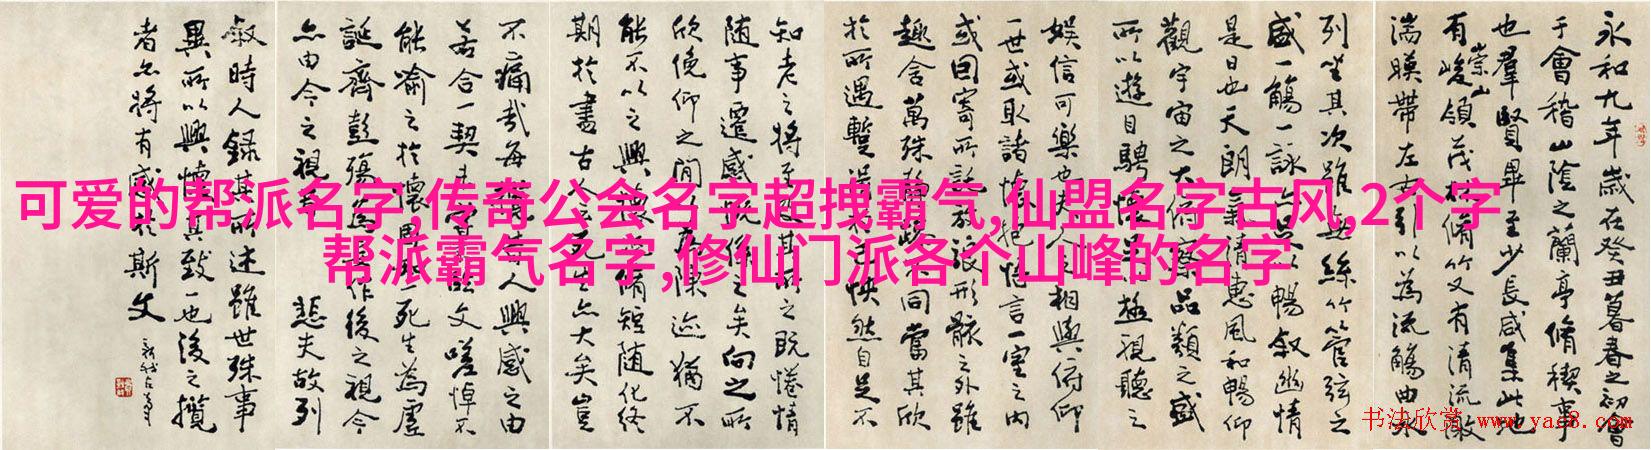 可爱的帮派名字,传奇公会名字超拽霸气,仙盟名字古风,2个字
帮派霸气名字,修仙门派各个山峰的名字
永和九年歲在癸丑暮春之初會
于會稽山陰之蘭亭脩稧事
也羣賢畢至少長咸集此地
有崇山峻領茂林脩竹又有清流激
湍暎帶左右引以為流觴曲水
列坐其次雖無絲竹管弦之
盛一觴一詠亦足以暢敘幽情
是日也天朗氣清惠風和暢仰
觀宇宙之大俯察品類之盛
所以遊目騁懷足以極視聽之
娛信可樂也夫人之相與俯仰
一世或取諸懷抱悟言一室之內
或因寄所託放浪形骸之外雖
趣舍萬殊靜躁不同當其欣
於所遇蹔得於己怏然自足不
知老之將至及其所之既惓情
随事遷感慨係之矣向之所
欣俛仰之間以為陳迹猶不
能不以之興懷況脩短随化終
期於盡古人云死生亦大矣豈
不痛哉每攬昔人興感之由
若合一契未嘗不臨文嗟悼不
能喻之於懷固知一死生為虛
誕齊彭殤為妄作後之視今
亦由今之視昔悲夫故列
敘時人録其所述雖世殊事
異所以興懷其致一也後之攬
者亦將有感於斯文
书法欣赏 www.yac8.com